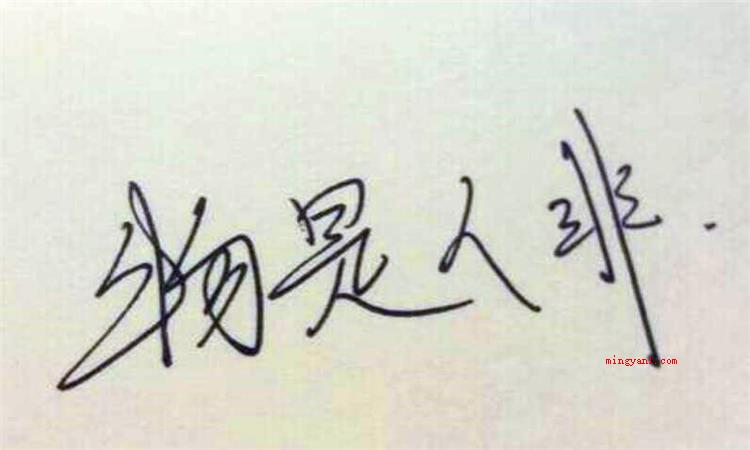 物是人非.
mingyan5.com